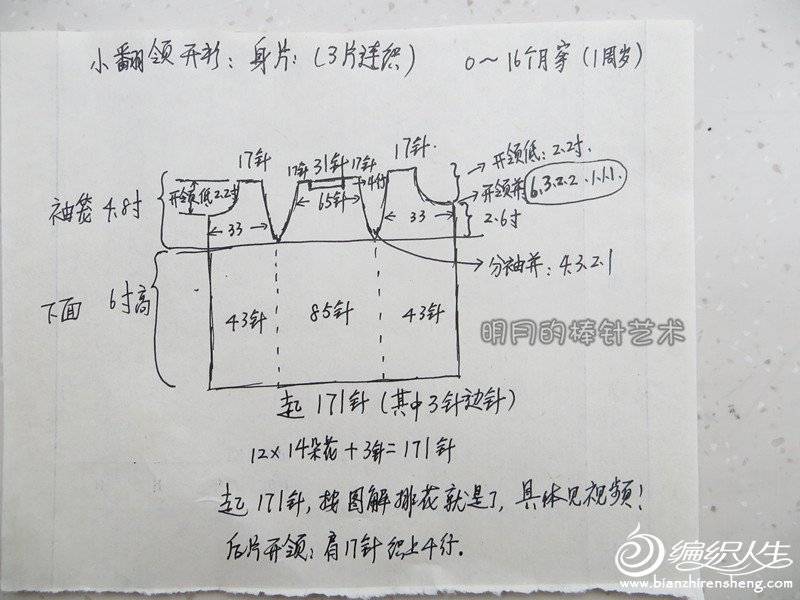 小翻领开衫：身片：（3片连织） 0～16个月穿（1周岁）
17针 17针 31针 17针 17针.
4行
65针
开领低2.2寸
袖笼 4.8寸
33 33
开领低：2.2寸.
开领并 6.3.2.2.1.1.1.
2.6寸
分袖并：4.3.2.1
下面 6寸高
43针 85针 43针
明月的棒针艺术
起171针（其中3针边针）
12×14朵花+3针=171针
起171针，按图解排花就是了，具体见视频！
后片开领：肩17针织上4行.
编织人生
www.bianzhirensheng.com